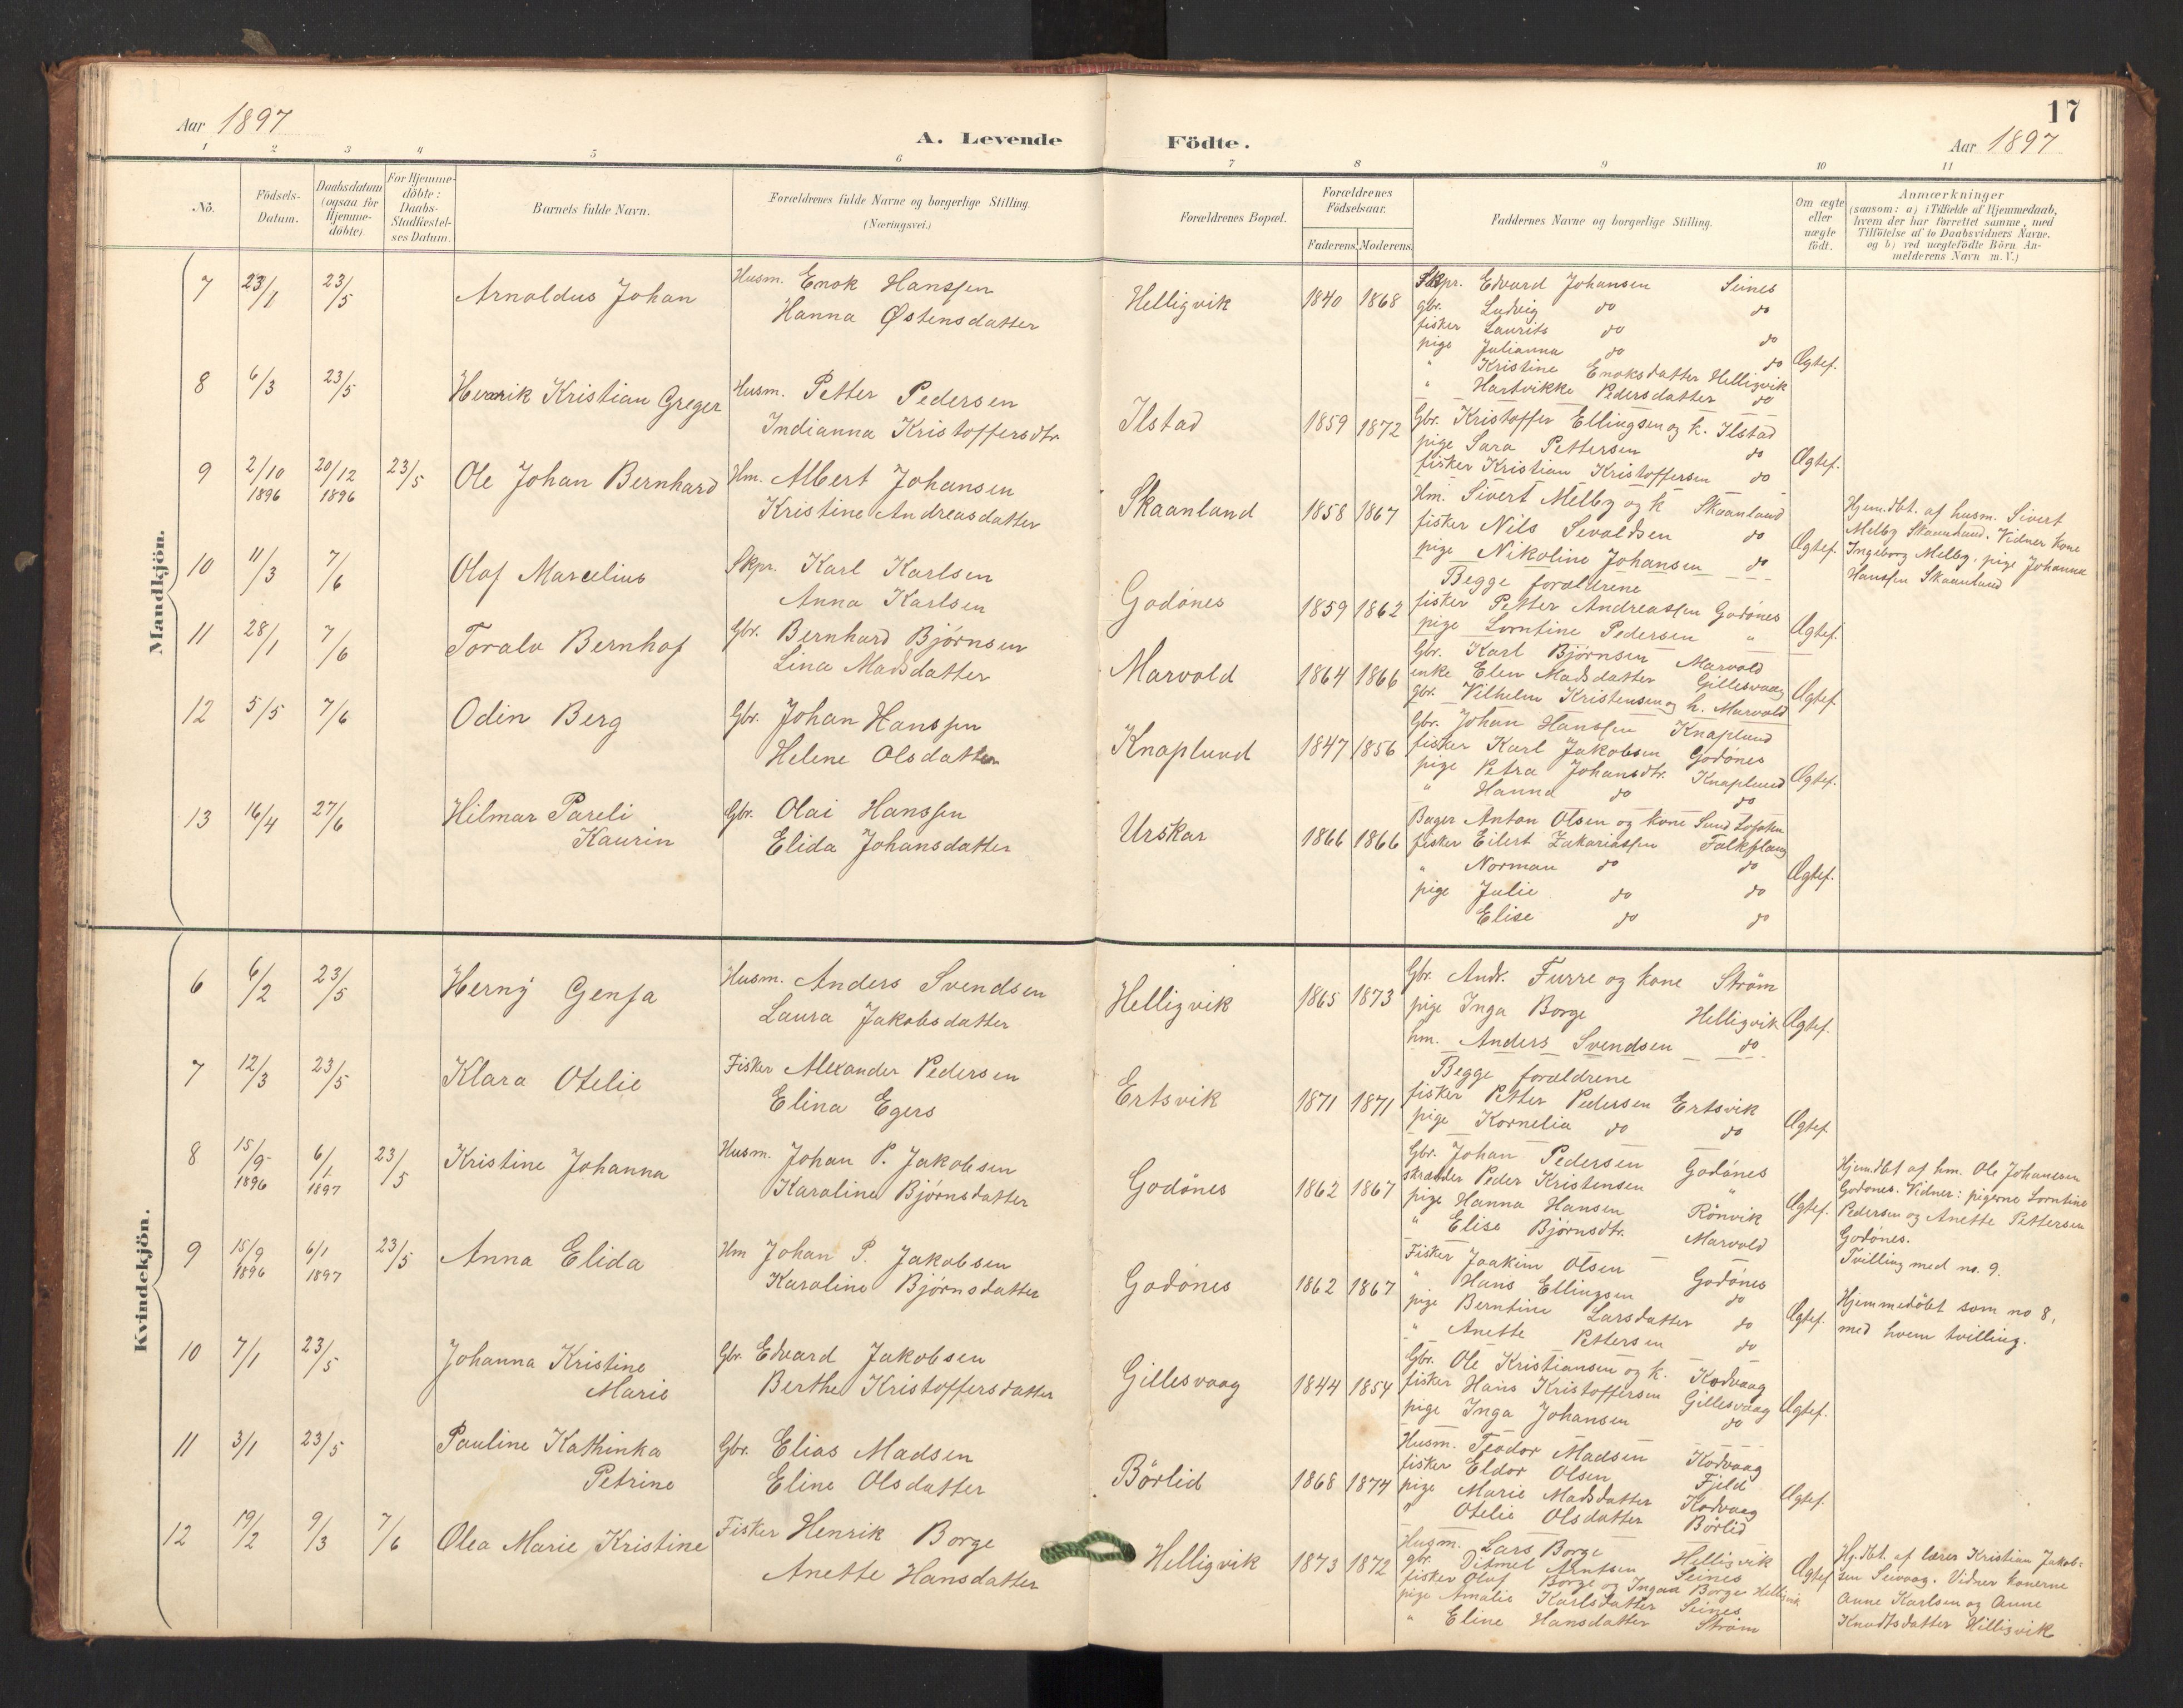 17
Aar 1897
A. Levende Födte.
Aar 1897
1 2 3 4 5 6 7 8 9 10 11
No.
Födsels-
Datum.
Daabsdatum
(ogsaa for
Hjemme-
döbte).
For Hjemme-
döbte:
Daabs-
Stadfæstel-
ses Datum.
Barnets fulde Navn.
Forældrenes fulde Navne og borgerlige Stilling.
(Næringsvei.)
Forældrenes Bopæl.
Forældrenes
Födselsaar.
Faderens. Moderens.
Faddernes Navne og borgerlige Stilling.
Om ægte
eller
uægte
født.
Anmærkninger
(saasom: a) i Tilfælde af Hjemmedaab,
hvem der har forrettet samme, med
Tilføielse af to Daabsvidners Navne.
og b) ved uægtefödte Börn An-
melderens Navn m. V.)
Mandkjön.
7 23/1 23/5 Arnoldus Johan
Husm. Enok Hanssen
Hanna Østensdatter
Helligvik 1840 1868
Skpr. Edvard Johansen Seines
gbr. Ludvig do do
fisker Laurits do do
pige Julianna do do
" Kristine Enoksdatter Helligvik
" Hartvikke Pedersdatter do
Ægtef.
8 6/3 23/5 Henrik Kristian Greger
Husm. Petter Pedersen
Indianna Kristoffersdtr.
Ilstad 1859 1872
Gbr. Kristoffer Ellingsen og k. Ilstad
pige Sara Pettersen do
fisker Kristian Kristoffersen do
Ægtef.
9 2/10 1896 20/12 1896 23/5 Ole Johan Bernhard
Hm. Albert Johansen
Kristine Andreasdatter
Skaanland 1858 1867
Hm. Sivert Melby og k Skaanland
fisker Nils Sevaldsen do
pige Nikoline Johansen do
Ægtef.
Hjem.dbt. af husm. Sivert
Melby Skaanland. Vidner kone
Ingeborg Melby, pige Johanna
Hanssen Skaanland
10 11/3 7/6 Olaf Marcelius
Skpr. Karl Karlsen
Anna Karlsen
Godönes 1859 1862
Begge forældrene
fisker Petter Andreassen Godönes
pige Lorntine Pedersen "
Ægtef.
11 28/1 7/6 Toralv Bernhof
Gbr. Bernhard Bjørnsen
Lina Madsdatter
Marvold 1864 1866
Gbr. Karl Bjørnsen Marvold
enke Elen Madsdatter Gillesvaag
gbr. Vilhelm Kristensen og k. Marvold
Ægtef.
12 5/5 7/6 Odin Berg
Gbr. Johan Hanssen
Helene Olsdatter
Knaplund 1847 1856
Gbr. Johan Hanssen Knaplund
fisker Karl Jakobsen Godönes
pige Petra Johansdtr. Knaplund
" Hanna do do
Ægtef.
13 16/4 27/6 Hilmar Pareli
Kaurin
Gbr. Olai Hanssen
Elida Johansdatter
Urskar 1866 1866
Bager Anton Olsen og kone Sund Lofoten
fisker Eilert Zakariassen Falkflaug
" Norman do do
pige Julie do do
Elise do do
Ægtef.
Kvindekjön.
6 6/2 23/5 Herny Genja
Husm. Anders Svendsen
Laura Jakobsdatter
Helligvik 1865 1873
Gbr. Andr. Furre og kone Ström
pige Inga Borge Helligvik
hm. Anders Svendsen do
Ægtef.
7 12/3 23/5 Klara Otelie
Fisker Alexander Pedersen
Elina Egers
Ertsvik 1871 1871
Begge forældrene
fisker Petter Pedersen Ertsvik
pige Kornelia do do
Ægtef.
8 15/9 1896 6/1 1897 23/5 Kristine Johanna
Husm. Johan P. Jakobsen
Karoline Bjørnsdatter
Godönes 1862 1867
Gbr. Johan Pedersen Godönes
skrædder Peder Kristensen "
pige Hanna Hansen Rönvik
" Elise Bjørnsdtr. Marvold
Ægtef.
Hjem.dbt af hm. Ole Johansen
Godønes. Vidner: pigerne Lorntine
Pedersen og Anette Pettersen
Godönes.
Tvilling med no. 9.
9 15/9 1896 6/1 1897 23/5 Anna Elida
Hm Johan P. Jakobsen
Karoline Bjørnsdatter
Godönes 1862 1867
Fisker Joakim Olsen Godönes
" Hans Ellingsen do
pige Berntine Larsdatter do
" Anette Pettersen do
Ægtef.
Hjemmedöbt som no 8,
med hvem tvilling.
10 7/1 23/5 Johanna Kristine
Marie
Gbr. Edvard Jakobsen
Berthe Kristoffersdatter
Gillesvaag 1844 1854
Gbr. Ole Kristiansen og k. Kodvaag
fisker Hans Kristoffersen Gillesvaag
pige Inga Johansen do
Ægtef.
11 3/1 23/5 Pauline Kathinka
Petrine
Gbr. Elias Madsen
Eline Olsdatter
Börlid 1868 1874
Husm. Teodor Madsen Kodvaag
fisker Eldor Olsen Fjeld
pige Marie Madsdatter Kodvaag
" Otelie Olsdatter Börlid
Ægtef.
12 19/2 9/3 7/6 Olea Marie Kristine
Fisker Henrik Borge
Anette Hansdatter
Helligvik 1873 1872
Husm. Lars Borge Helligvik
gbr. Ditmel Arntsen Seines
fisker Oluf Borge og Ingaa Borge Helligvik
pige Amalie Karlsdatter Seines
" Eline Hansdatter Ström
Ægtef
Hj.dbt. af lærer Kristian Jakob-
sen Seivaag. Vidner konerne
Anne Karlsen og Anne
Knudtsdatter Helligvik